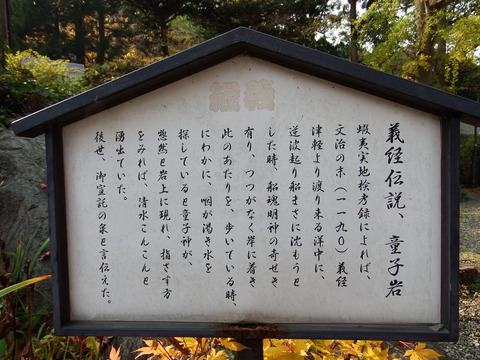 義経
義経伝説、童子岩
蝦夷実地検考録によれば、
文治の末(一一九〇)義経
津軽より渡り来る洋中に、
逆波起り船まさに沈もうと
した時、船魂明神の奇せき
有り、つつがなく岸に着き
此のあたりを、歩いている時、
にわかに、咽が渇き水を
探していると童子神が、
愁然と岩上に現れ、指さす方
をみれば、清水こんこんと
湧出ていた。
後世、御宣託の泉と言伝えた。